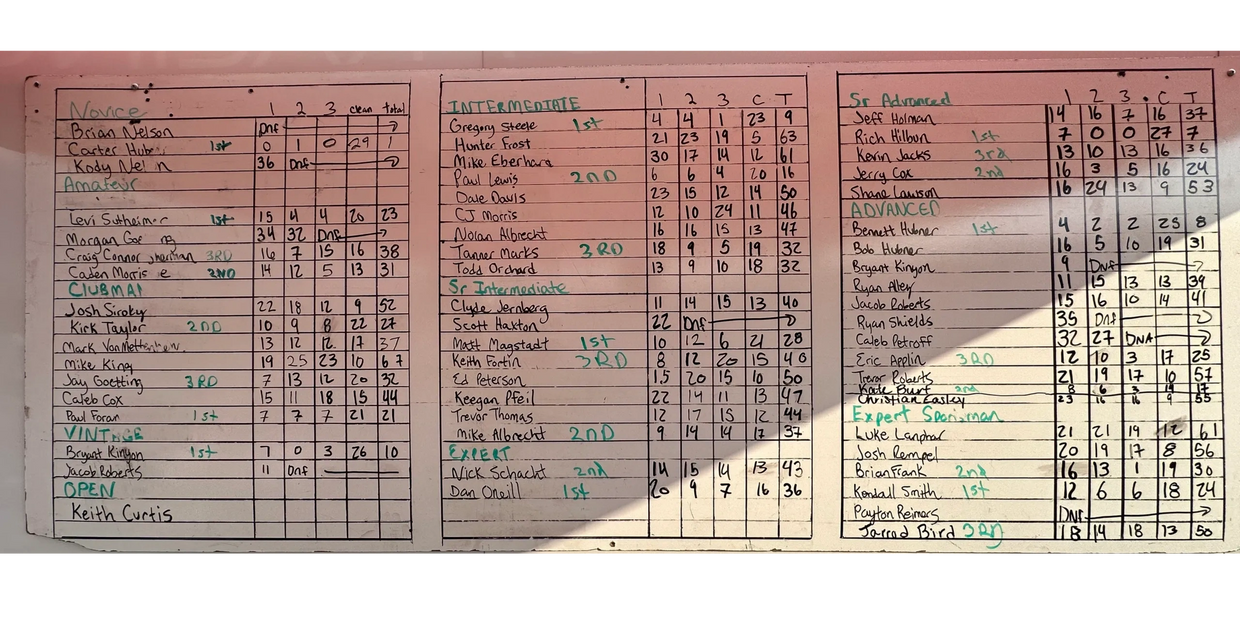 Novice 1 2 3 clean total
Brian Nelson Dnf
Carter 1st 0 1 0 29 1
Kody 36 Dnf
Amateur
Levi 1st 15 4 4 20 23
Morgan 34 32 Dnf
Craig Connor 3RD 16 7 15 16 38
Caden 2ND 14 12 5 13 31
CLUBMAN
Josh Siroky 22 18 12 9 52
Kirk Taylor 2ND 10 9 8 22 27
Mark 13 12 12 17 37
Mike King 19 25 23 10 67
Jay Goetting 3RD 7 13 12 20 32
Caleb Cox 15 11 18 15 44
Paul Foran 1st 7 7 7 21 21
VINTAGE
Bryant Kinyon 1st 7 0 3 26 10
Jacob Roberts 11 Dnf
OPEN
Keith Curtis
INTERMEDIATE 1 2 3 C T
Gregory Steele 1st 4 4 1 23 9
Hunter Frost 21 23 19 5 63
Mike Eberhard 30 17 14 12 61
Paul Lewis 2ND 6 6 4 20 16
Dale Davis 23 15 12 14 50
CJ Morris 12 10 24 11 46
Nolan Albrecht 16 16 15 13 47
Tanner Marks 3RD 18 9 5 19 32
Todd Orchard 13 9 10 18 32
Sr Intermediate
Clyde Jernberg 11 14 15 13 40
Scott Haxton 22 Dnf
Matt Magstadt 1st 10 12 6 21 28
Keith Fortin 3RD 8 12 20 15 40
Ed Peterson 15 20 15 10 50
Keegan Pfeil 22 14 11 13 47
Trevor Thomas 12 17 15 12 44
Mike Albrecht 2ND 9 14 14 17 37
EXPERT
Nick Schacht 2nd 14 15 14 13 43
Dan Oneill 1st 20 9 7 16 36
Sr Advanced 1 2 3 C T
Jeff Holman 14 16 7 16 37
Rich Hilbun 1st 7 0 0 27 7
Kevin Jacks 3rd 13 10 13 16 36
Jerry Cox 2nd 16 3 5 16 24
Shane Lawson 16 24 13 9 53
ADVANCED
Bennett Hubner 1st 4 2 2 25 8
Bob Hubner 16 5 10 19 31
Bryant Kinyon 9 Dnf
Ryan Alley 11 15 13 13 39
Jacob Roberts 15 16 10 14 41
Ryan Shields 35 Dnf
Caleb Petroff 32 27 DNA
Eric Applin 3RD 12 10 3 17 25
Trevor Roberts 21 19 17 10 57
Kate Burt 2nd 8 6 3 19 17
Christian Easley 23 16 16 9 55
Expert Sportsman
Luke Lanphar 21 21 19 12 61
Josh Rempel 20 19 17 8 56
Brian Frank 2nd 16 13 1 19 30
Kendall Smith 1st 12 6 6 18 24
Payton Reimers Dnf
Jarrod Bird 3RD 18 14 18 13 50